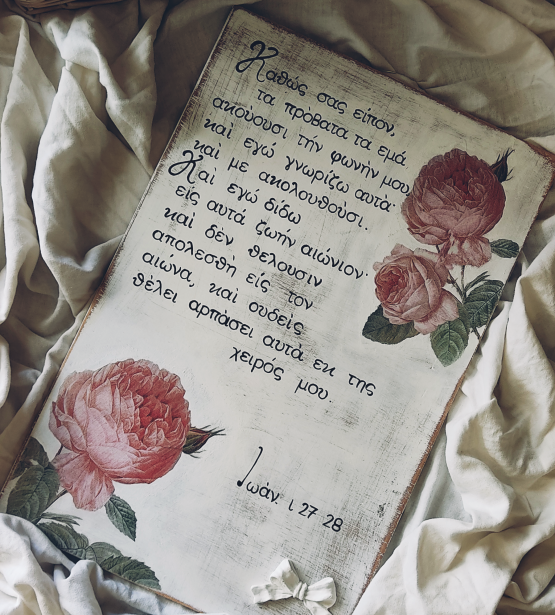 Καθώς σας είπον,
τα πρόβατα τα εμά
ακούουσι τήν φωνήν μου
καί εγώ γνωρίζω αυτά·
καί με ακολουθούσι.
Καί εγώ δίδω
είς αυτά ζωήν αιώνιον·
καί δέν θελουσιν
απολεσθή είς τον
αιώνα, καί ουδείς
θέλει αρπάσει αυτά εκ της
χειρός μου.
Ιωάν. ι 27 28